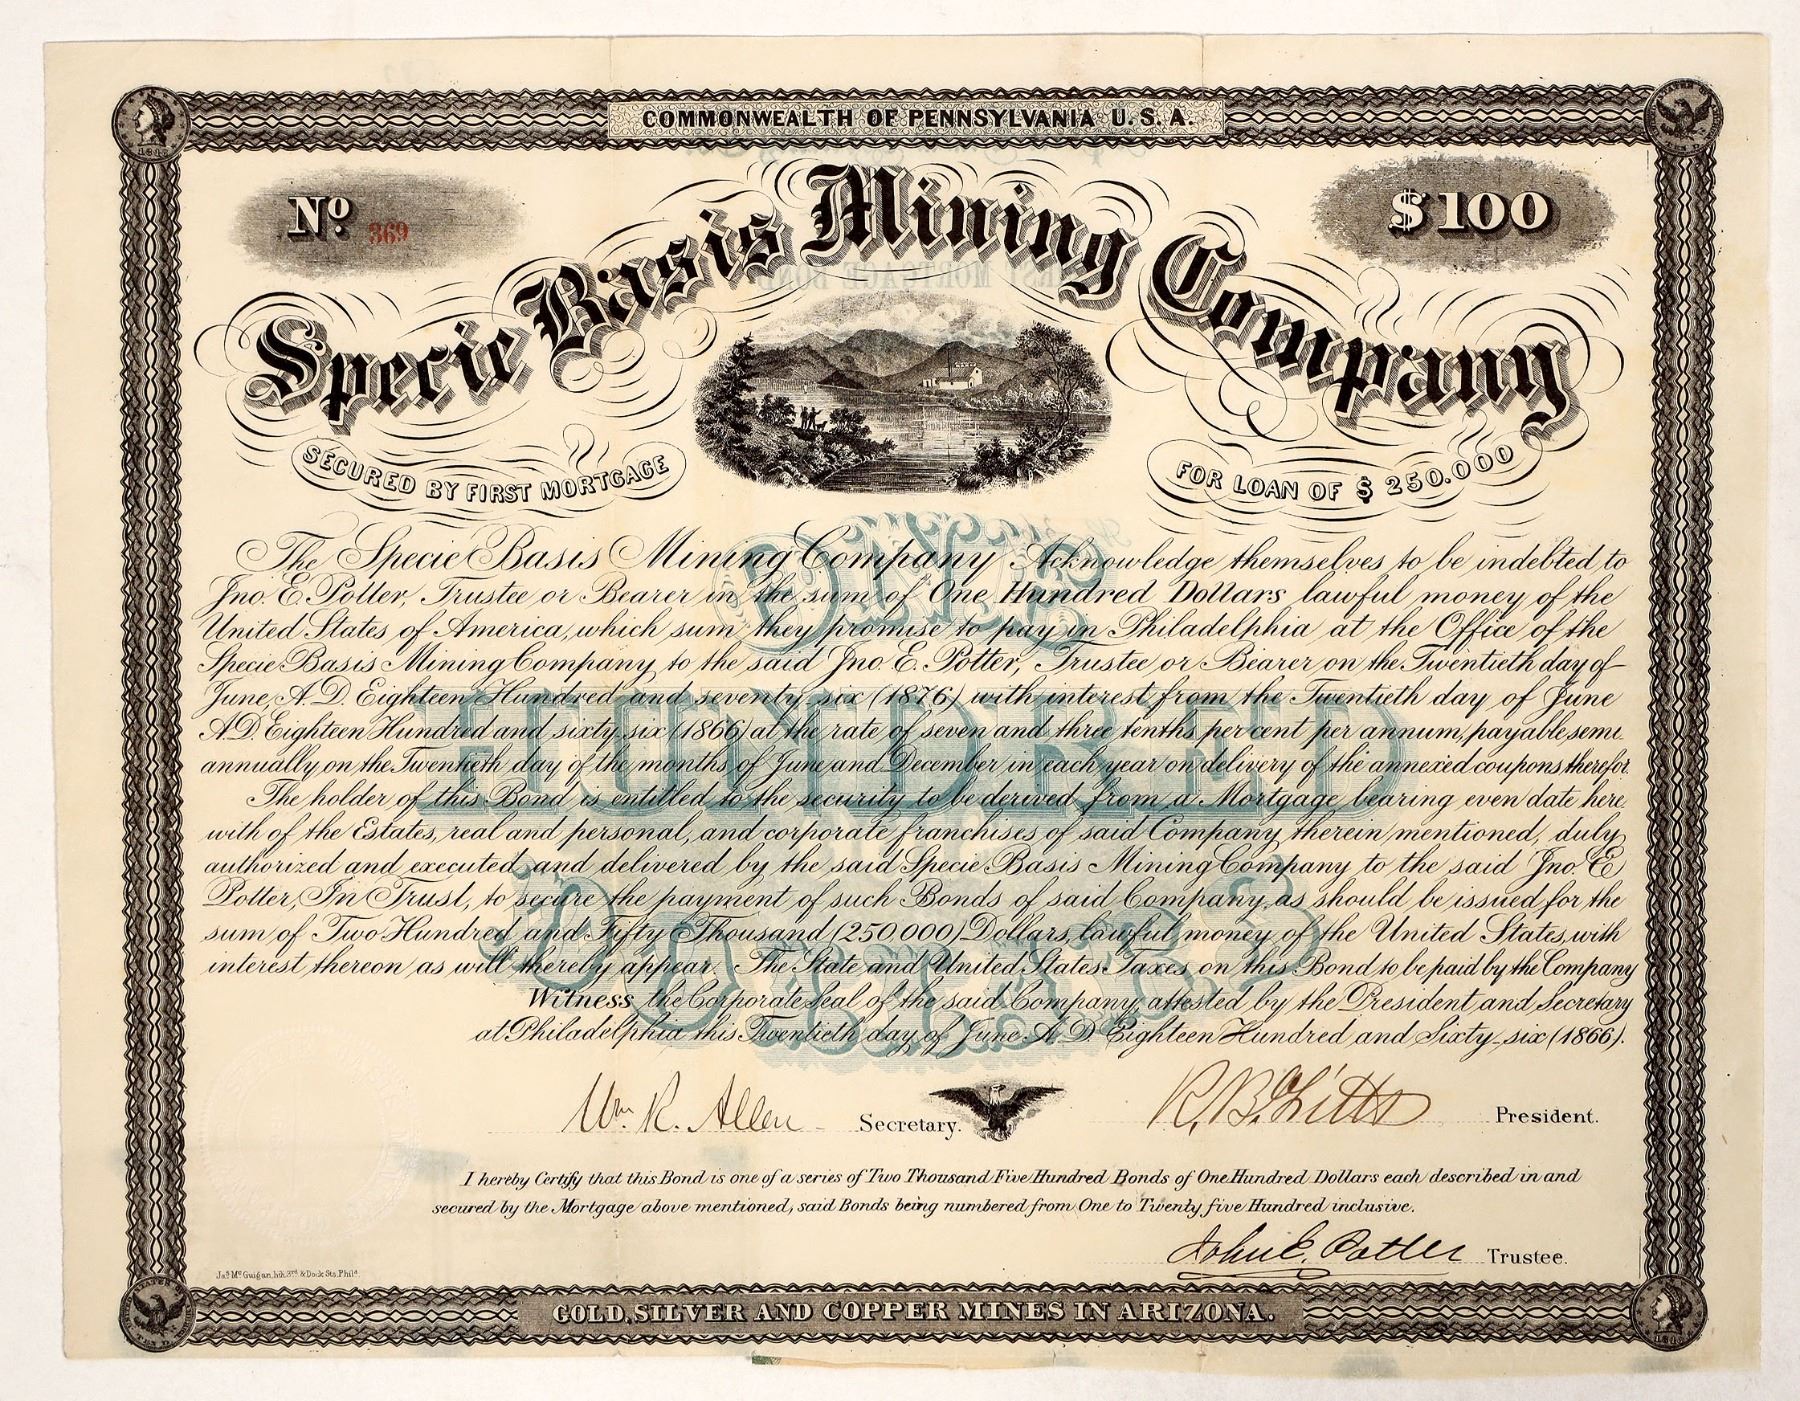 COMMONWEALTH OF PENNSYLVANIA U.S.A.
No. 369
$100
Specie Basis Mining Company
SECURED BY FIRST MORTGAGE
FOR LOAN OF $250.000
The Specie Basis Mining Company Acknowledge themselves to be indebted to
Jno. E. Potter, Trustee or Bearer in the sum of One Hundred Dollars lawful money of the
United States of America, which sum they promise to pay in Philadelphia at the Office of the
Specie Basis Mining Company to the said Jno. E. Potter, Trustee or Bearer on the Twentieth day of
June, A.D. Eighteen Hundred and seventy six (1876) with interest from the Twentieth day of June
A.D. Eighteen Hundred and sixty six (1866) at the rate of seven and three tenths per cent per annum, payable semi
annually on the Twentieth day of the months of June and December in each year on delivery of the annexed coupons therefor.
The holder of this Bond is entitled to the security to be derived from a Mortgage bearing even date here
with of the Estates, real and personal, and corporate franchises of said Company therein mentioned, duly
authorized and executed and delivered by the said Specie Basis Mining Company to the said Jno. E
Potter, In Trust, to secure the payment of such Bonds of said Company, as should be issued for the
sum of Two Hundred and Fifty Thousand (250,000) Dollars, lawful money of the United States, with
interest thereon as will thereby appear. The State and United States Taxes on this Bond to be paid by the Company
Witness the Corporate Seal of the said Company, attested by the President and Secretary
at Philadelphia this Twentieth day of June A.D. Eighteen Hundred and Sixty-six (1866).
ONE
HUNDRED
DOLLARS
Wm. R. Allen Secretary.
President.
I hereby Certify that this Bond is one of a series of Two Thousand Five Hundred Bonds of One Hundred Dollars each described in and
secured by the Mortgage above mentioned, said Bonds being numbered from One to Twenty five Hundred inclusive.
John E. Potter Trustee.
Jas. McGuigan, lith. 3rd & Dock Sts. Phila.
GOLD, SILVER AND COPPER MINES IN ARIZONA.